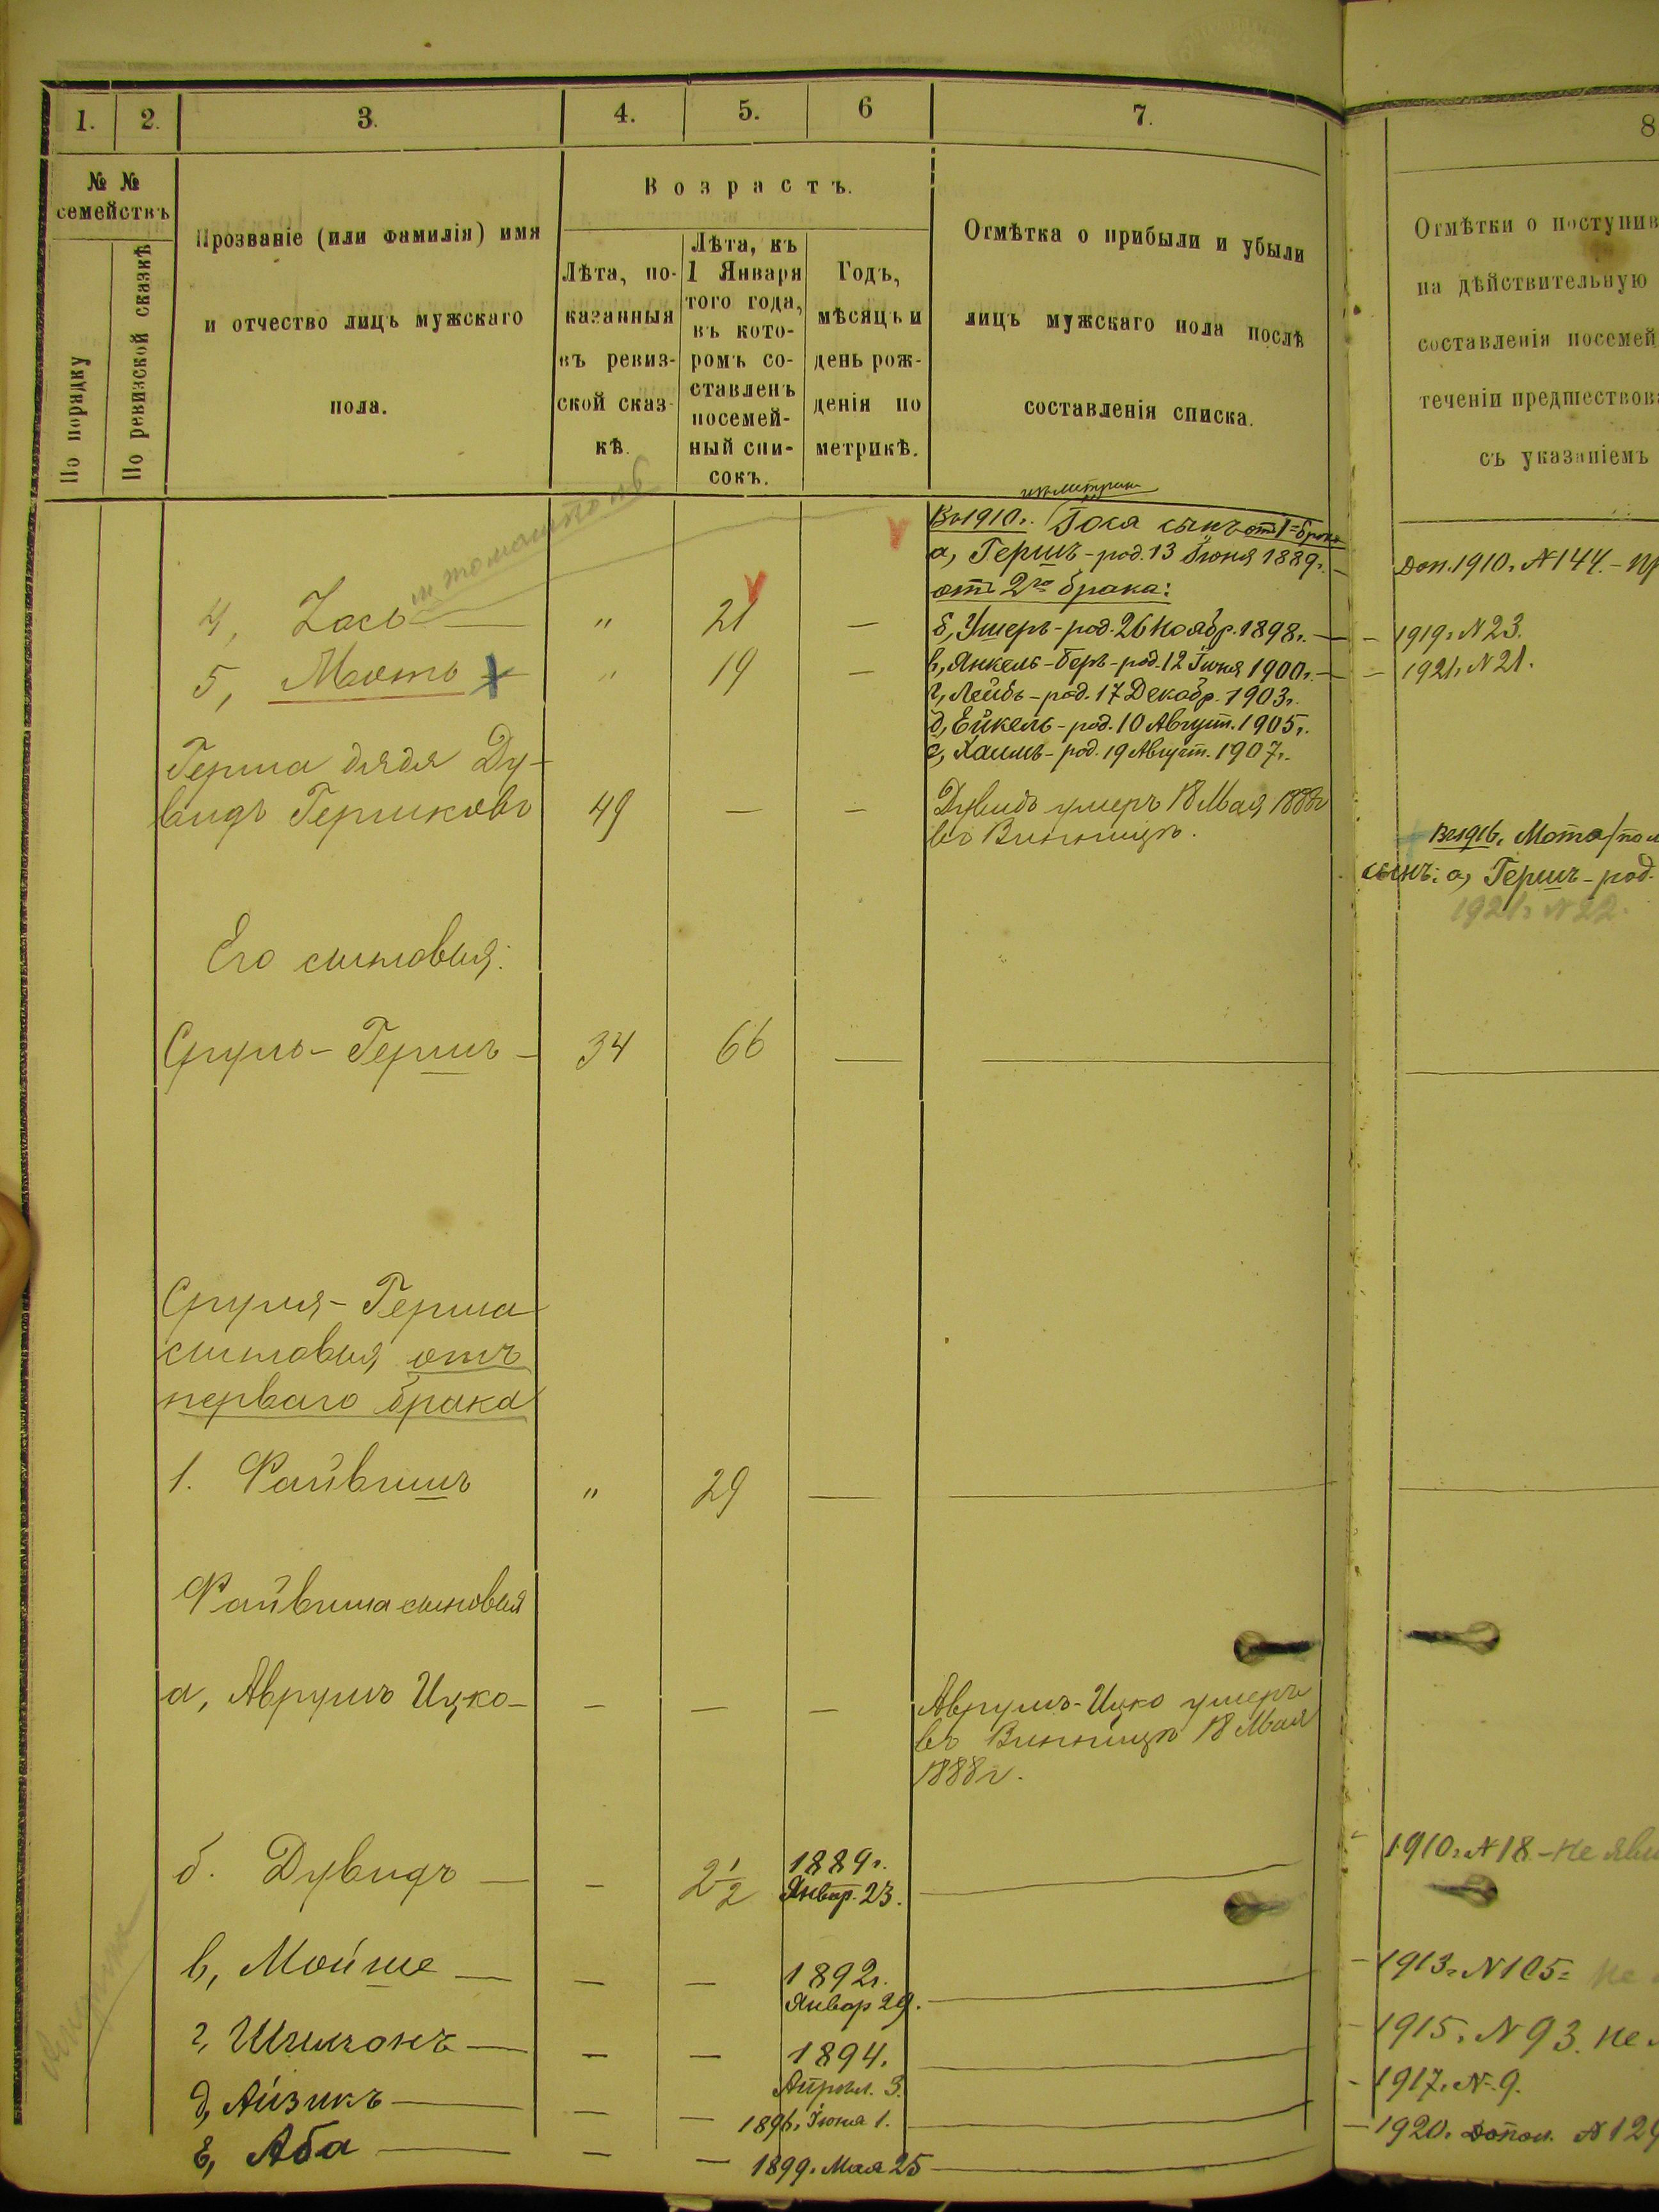 1. 2. 3. 4. 5. 6 7. 8
№ № семействъ
По порядку
По ревизской сказкѣ
Прозваніе (или фамилія) имя
и отчество лицъ мужскаго
пола.
Возрастъ.
Лѣта, по-
казанныя
въ ревиз-
ской сказ-
кѣ.
Лѣта, къ
1 Января
того года,
въ кото-
ромъ со-
ставленъ
посемей-
ный спи-
сокъ.
Годъ,
мѣсяцъ и
день рож-
денія по
метрикѣ.
Отмѣтка о прибыли и убыли
лицъ мужскаго пола послѣ
составленія списка.
Отмѣтки о поступив
на дѣйствительную
составленія посемей
теченіи предшествов
съ указаніемъ
Въ 1910г. Іося сынъ от 1=брака
а, Гершъ - род. 13 Іюня 1889г. –
Доп. 1910г. №144. –
от 2го брака:
4, " 21 —
б, Ушеръ - род. 26 Ноябр. 1898г. —
– 1919г. №23.
5, Мотъ " 19 —
в, Янкель - Беръ - род. 12 Іюня 1900г. —
– 1921г. №21.
г, Лейбъ - род. 17 Декабр. 1903г.
д, Ейкель - род. 10 Август. 1905г.
е, Хаимъ - род. 19 Август. 1907г.
Герша дядя Ду-
видъ Гершковъ 49 — —
Дувидъ умеръ 18 Мая 1888г
въ Винницѣ.
Въ 1916г. Мота
сынъ: а, Гершъ - род.
1921г. №22.
Его сыновья:
Сруль - Гершъ – 34 66 —
Сруля - Герша
сыновья отъ
перваго брака
1. Файвишъ " 29 —
Файвиша сыновья
а, Аврумъ Ицко – — — —
Аврумъ - Ицко умеръ
въ Винницѣ 18 Мая
1888г.
б. Дувидъ — – 2 1/2 1889г.
Январ. 23.
1910г. №18. – не яви
в, Мойше — — — 1892г.
Январ 29.
– 1913г. №105= не
г, Шимонъ — — — 1894.
Апрѣл. 3.
– 1915г. №93. не
д, Айзикъ — — — 1896г. Іюня 1.
– 1917г. №9.
е, Аба — — — 1899г. Мая 25
– 1920г. Допол. №129